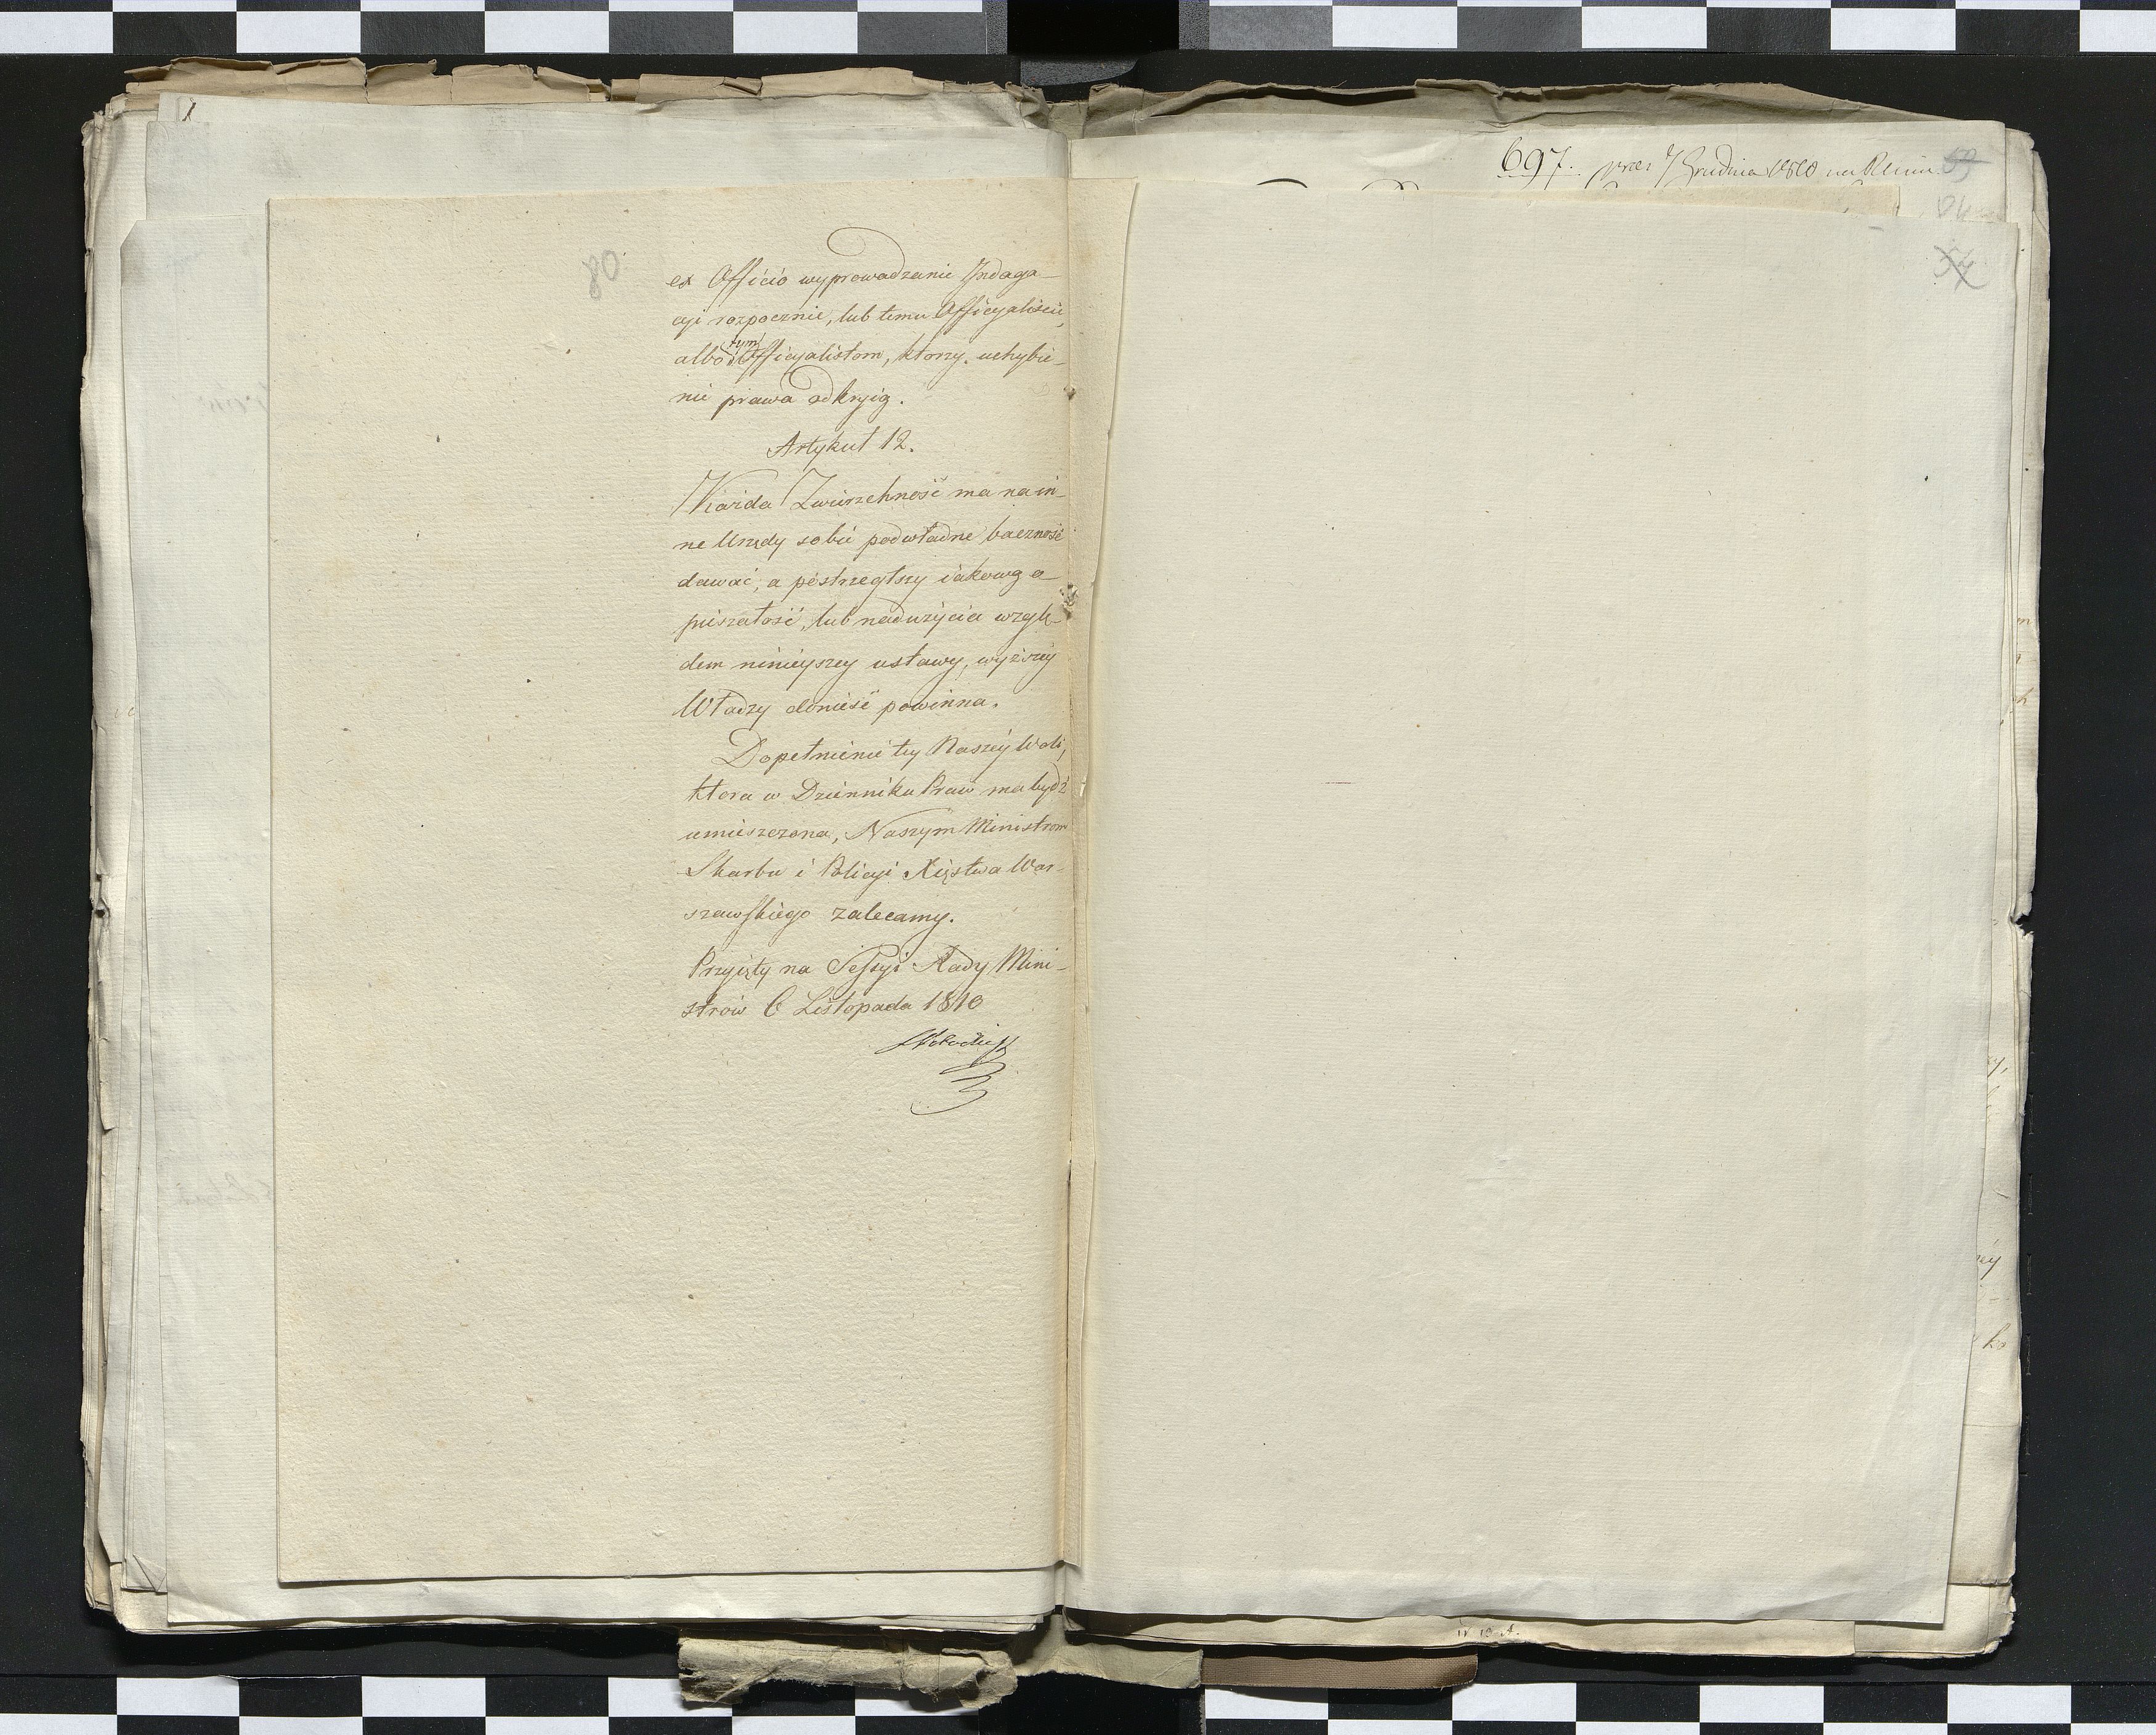 80
ex Officio wyprowadzanie Indaga-
cyi rozpocznie, lub temu Officyaliście,
albo tym Officyalistom, ktorzy uchybie-
nie prawa odkryią.
Artykuł 12.
Każda Zwierzchność ma na in-
ne Urzędy sobie podwładne baczność
dawać, a postrzegłszy iakową o-
pieszałość, lub nadużycia wzglę-
dem ninieyszey ustawy, wyższey
Władzy donieść powinna.
Dopełnienie tey Naszéy Woli,
ktora w Dzienniku Praw ma bydź
umieszczona, Naszym Ministrom
Skarbu i Policyi Xięstwa War-
szawskiego zalecamy.
Przyięty na Sessyi Rady Mini-
strow 6 Listopada 1810
697. 7 Grudnia 1810
54